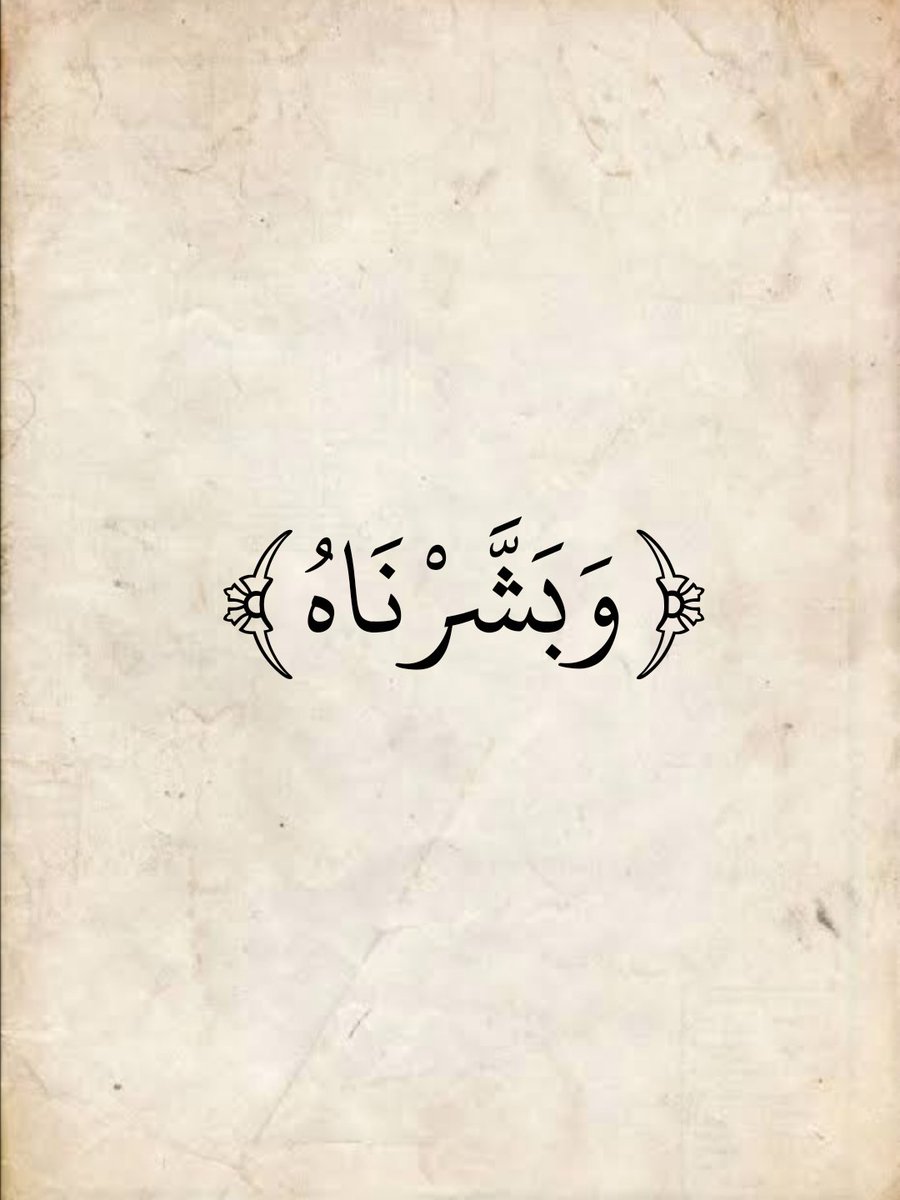 ﴿ وَبَشَّرْنَاهُ ﴾